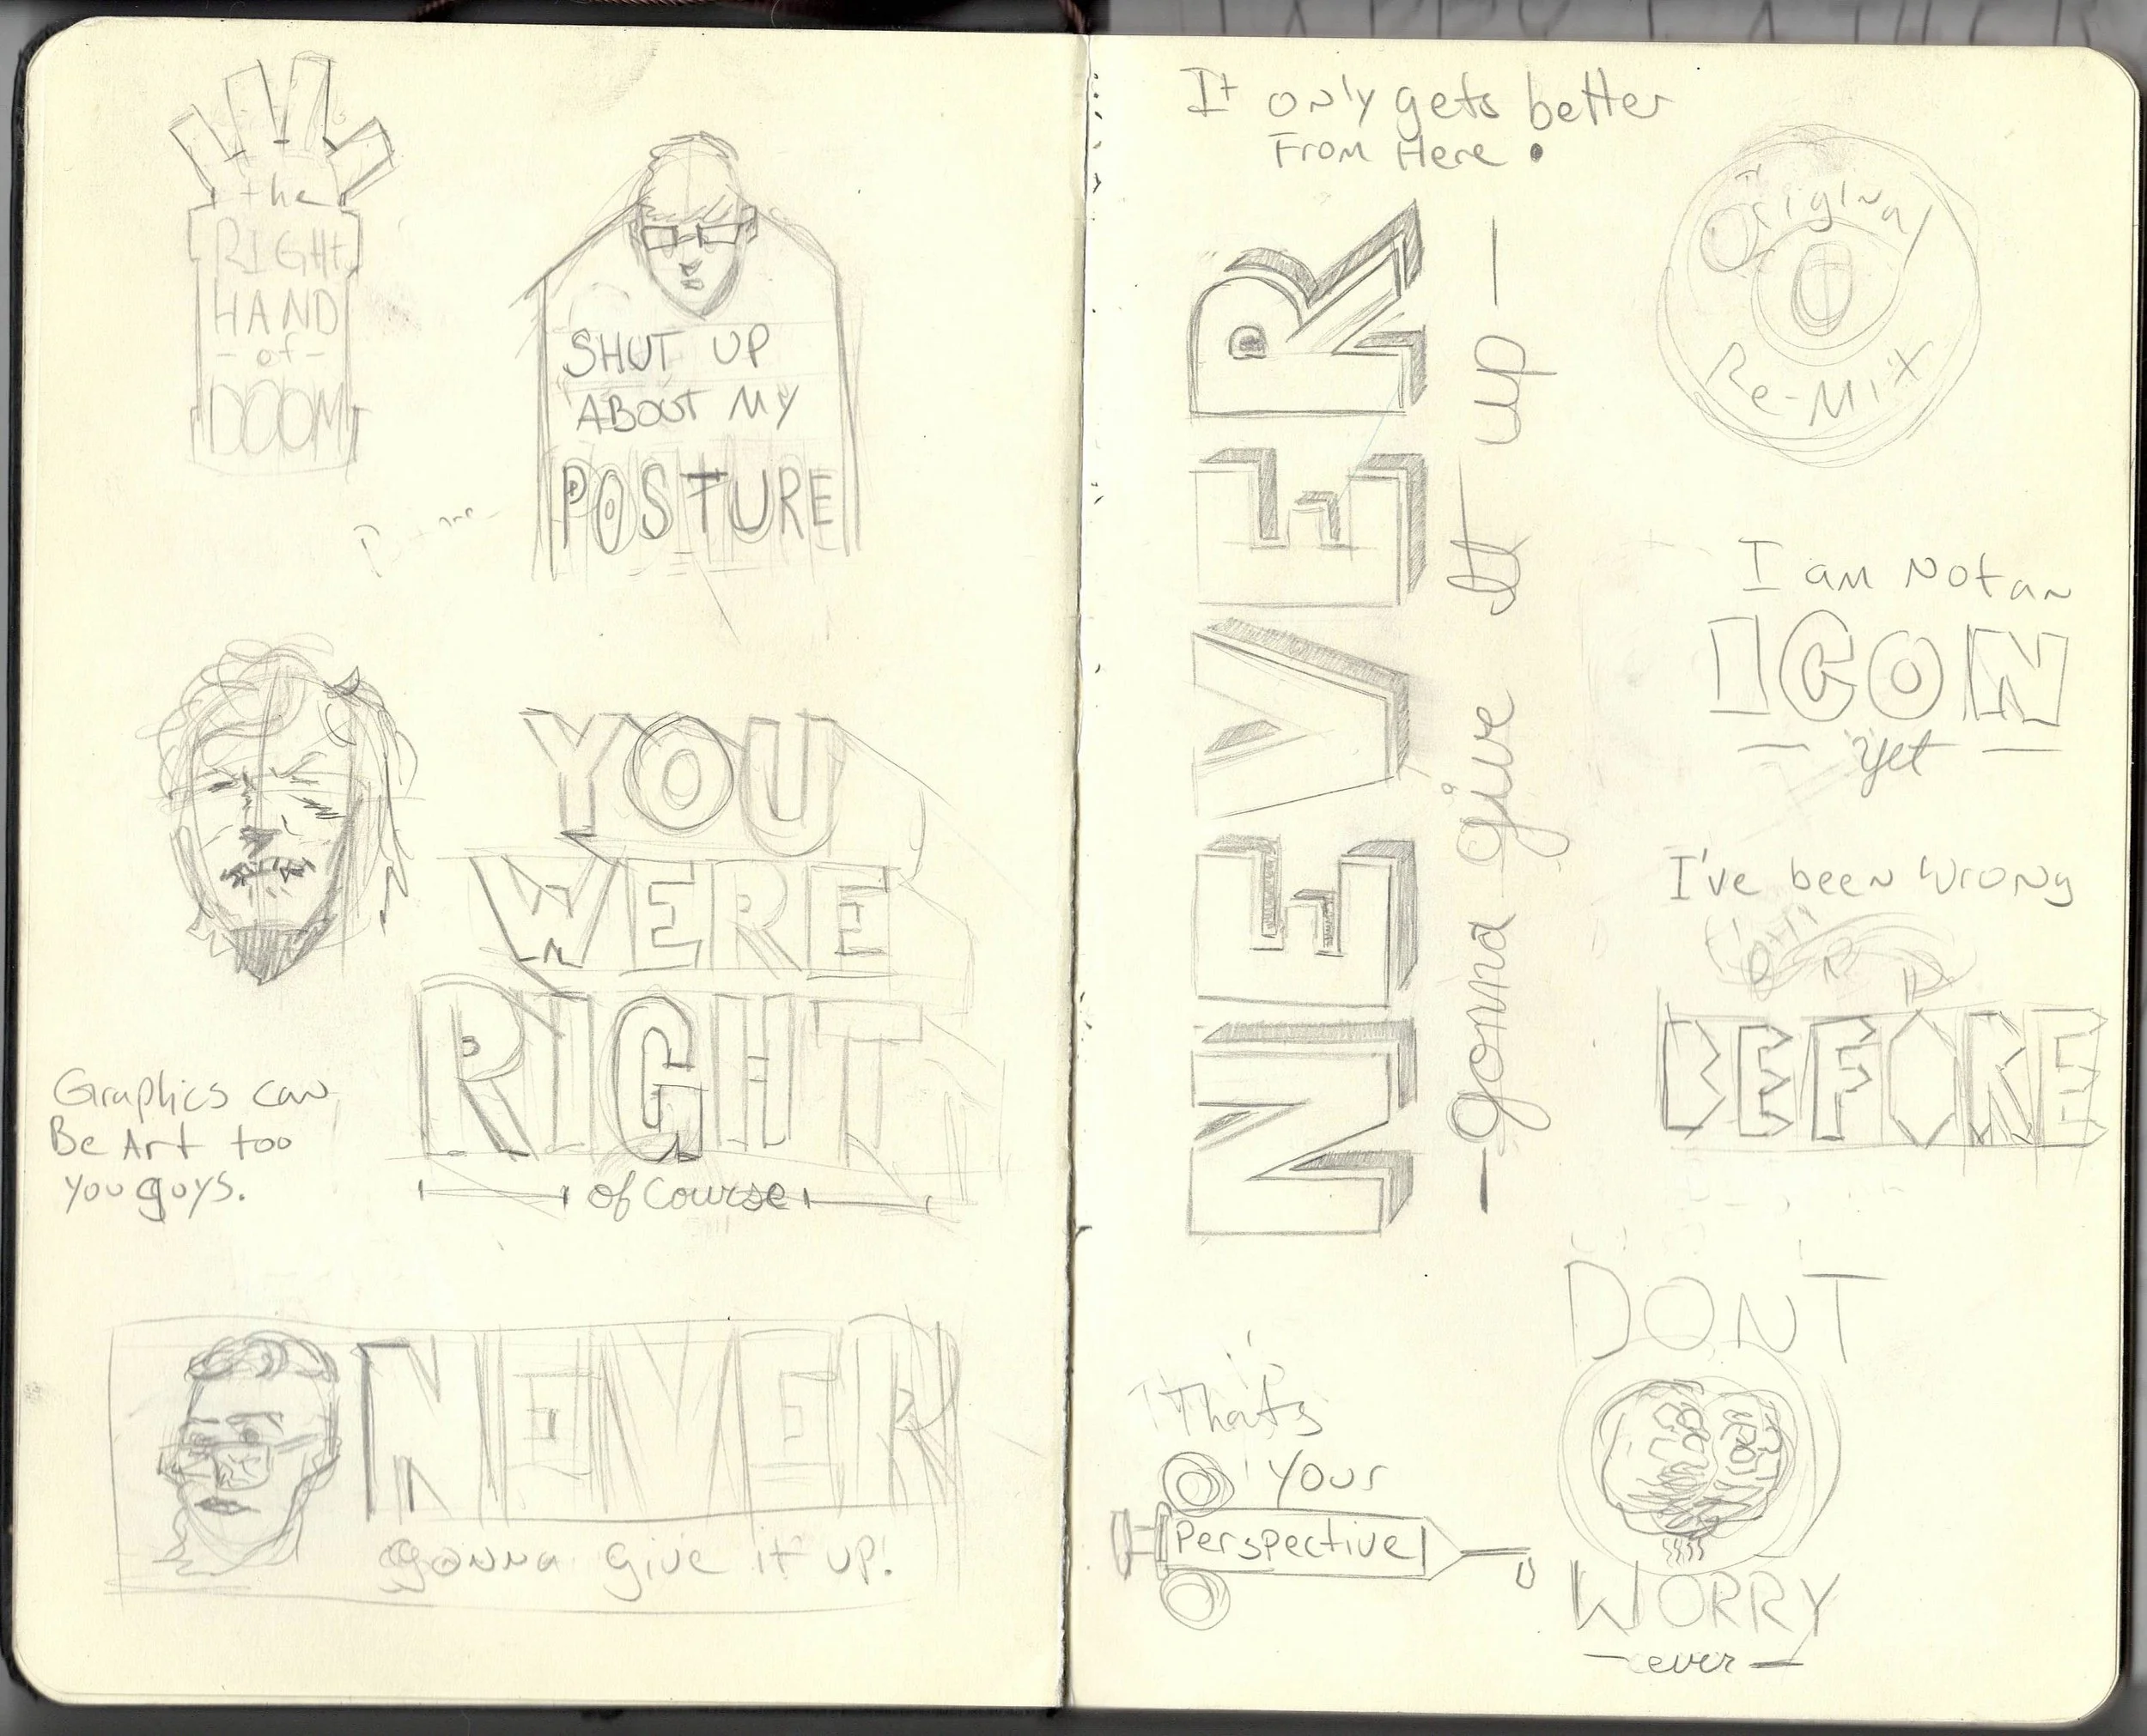 the
RIGHT
HAND
- of -
DOOM
SHUT UP
ABOUT MY
POSTURE
YOU
WERE
RIGHT
of course
Graphics can
Be Art too
you guys.
NEVER
gonna give it up!
It only gets better
From Here.
NEVER
- gonna give It up -
Original
Re-Mix
I am Not an
ICON
- yet -
I've been Wrong
BEFORE
That's
Your
Perspective
DONT
WORRY
- ever -